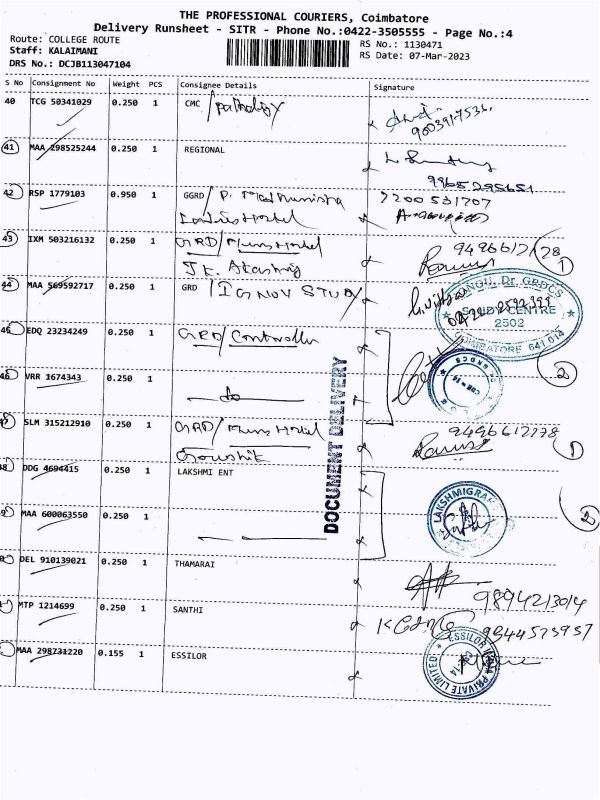 THE PROFESSIONAL COURIERS, Coimbatore
Delivery Runsheet - SITR - Phone No.:0422-3505555 - Page No.:4
Route: COLLEGE ROUTE
Staff: KALAIMANI
DRS No.: DCJB113047104
RS No.: 1130471
RS Date: 07-Mar-2023
S No Consignment No Weight PCS Consignee Details Signature
40 TCG 50341029 0.250 1 CMC / pathology
9003917536
41 MAA 298525244 0.250 1 REGIONAL
9965295651
42 RSP 1779103 0.950 1 GGRD / P.
Ladies Hostel
7200531707
43 IXM 503216132 0.250 1 GRD / Mens Hostel
9496612778 1
44 MAA 569592717 0.250 1 GRD / IGNOU STUDY
IGNOU, Dr. GRDCS
STUDY CENTRE
2502
COIMBATORE 641 014
45 EDQ 23234249 0.250 1 GRD / Controller
46 VRR 1674343 0.250 1 do
2
GRDCS
CBE - 14
DOCUMENT DELIVERY
47 SLM 315212910 0.250 1 GRD / Mens Hostel
9496612778 1
48 DDG 4694415 0.250 1 LAKSHMI ENT
49 MAA 600063550 0.250 1
2
50 DEL 910139021 0.250 1 THAMARAI
9894213014
MTP 1214699 0.250 1 SANTHI
9344523937
MAA 298731220 0.155 1 ESSILOR
ESSILOR INDIA PRIVATE LIMITED